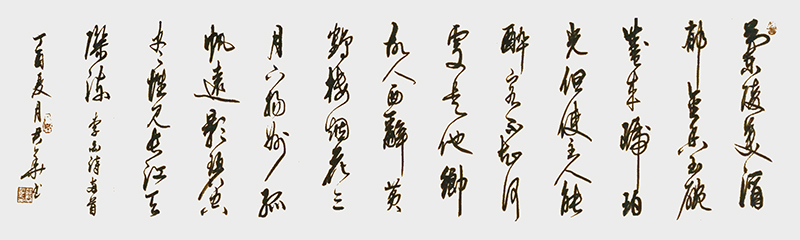 蘭陵美酒
郁金香玉碗
盛来琥珀
光但使主人能
醉客不知何
處是他鄉
故人西辭黄
鶴楼烟花三
月下揚州孤
帆遠影碧空
尽惟見长江天
際流 李白詩两首
丁酉夏月